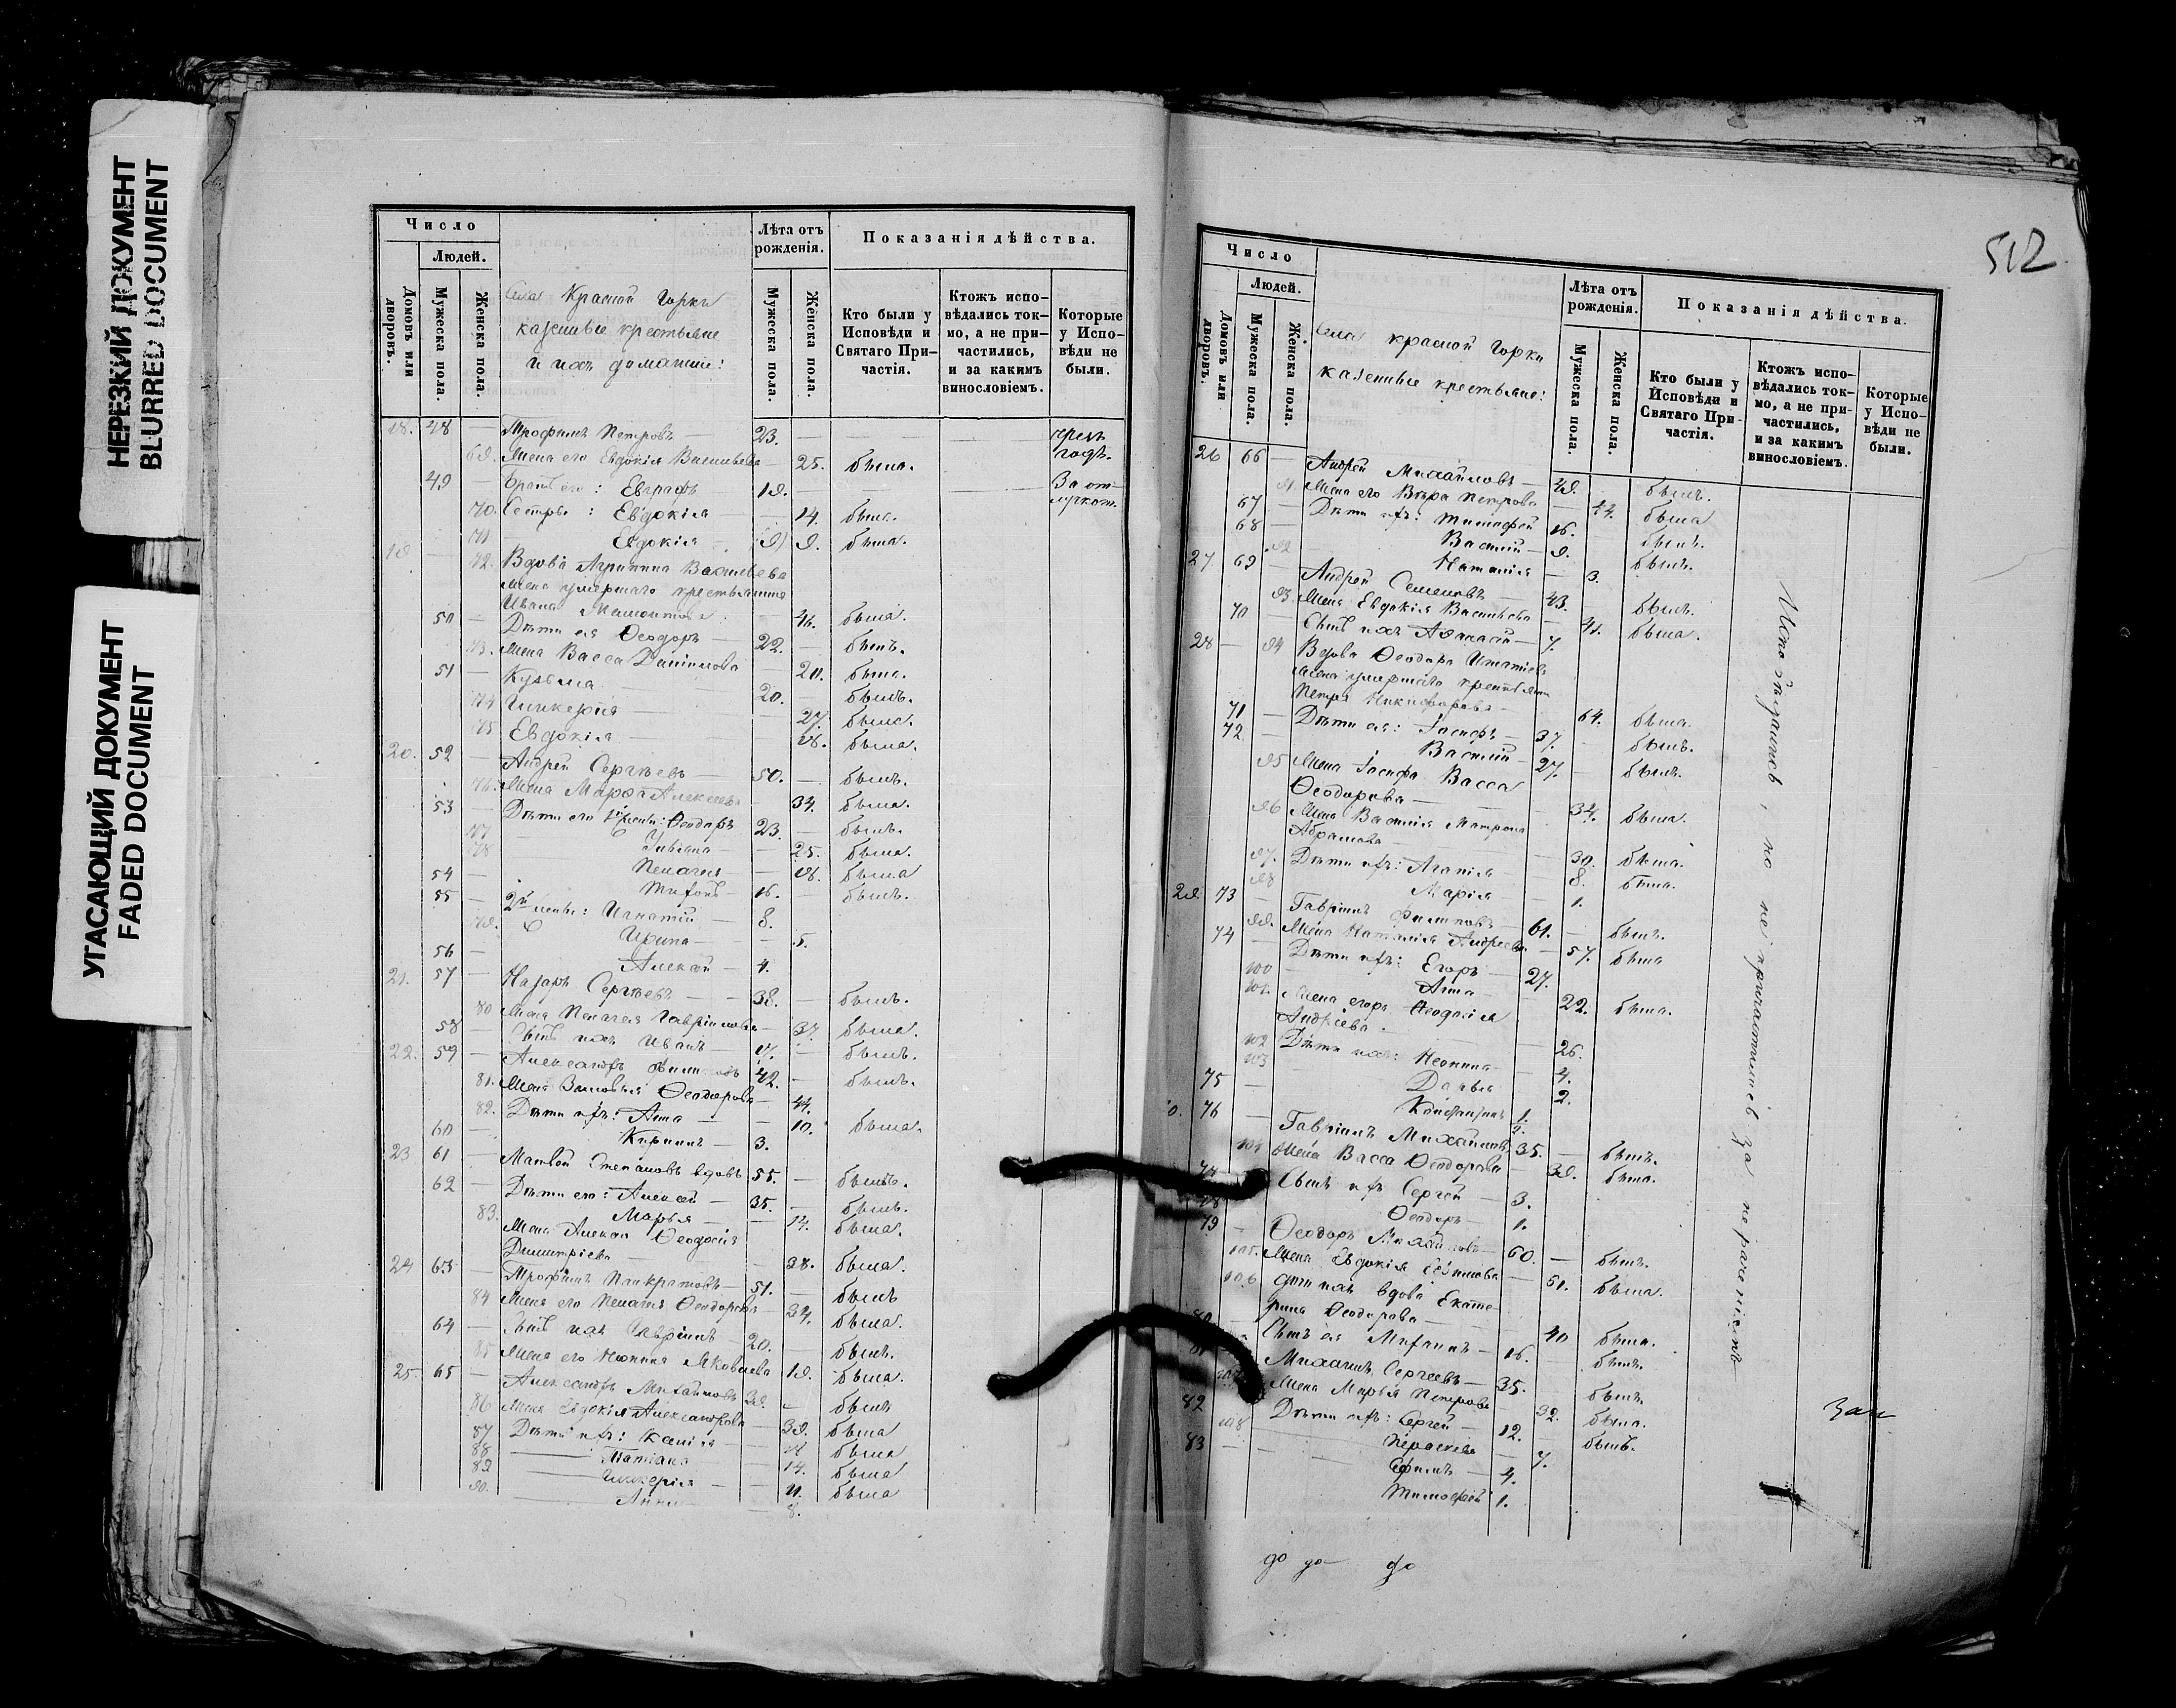 НЕРЕЗКИЙ ДОКУМЕНТ
BLURRED DOCUMENT
УГАСАЮЩИЙ ДОКУМЕНТ
FADED DOCUMENT
Число
Людей.
Домовъ или дворовъ.
Мужеска пола.
Женска пола.
Села Красной Горки
казенные крестьяне
и ихъ домашніе:
Лѣта отъ рожденія.
Мужеска пола.
Женска пола.
Показанія дѣйства.
Кто были у Исповѣди и Святаго При-частія.
Ктожъ испо-вѣдались ток-мо, а не при-частились, и за какимъ винословіемъ.
Которые у Испо-вѣди не были.
18. 48 — Трофимъ Петровъ — 23. —
69. Жена его Евдокія Васильева — 25. была.
49 — Братъ его: Евграфъ 19. — За от-
70. Сестры: Евдокія — 14. была.
71 Евдокія — 9. была.
19 — 72. Вдова Агрипина Васильева
жена умершаго крестьянина
Ивана 46. была.
50 — Дѣти ея Ѳеодоръ — 22. — былъ.
73. Жена Васса 20. была.
51 — Кузьма — 20. — былъ.
74 Гликерія — 27. была.
75 Евдокія — 18. была.
20. 52 — Андрей Сергѣевъ — 50. — былъ.
76. Жена Марѳа Алексѣева — 34. была.
53 — Дѣти его Ѳеодоръ 23. — былъ.
77 — 25. была.
78 Пелагея — 18. была
54 — 16. — былъ.
55 — Игнатій — 8.
79. Ирина — 5.
56 — Алексѣй — 4.
21. 57 — Назаръ Сергѣевъ — 38. — былъ.
80 Жена Пелагея Гавріилова — 37. была.
58 — Сынъ ихъ Иванъ — 17. — былъ.
22. 59 — Александръ Филиповъ 42. — былъ.
81. Жена Ѳеодорова — 44.
82. Дѣти ихъ: Анна — 10. была.
60 — Кирилъ — 3.
23 61 — Матвѣй Степановъ вдовъ 55. — былъ.
62 — Дѣти его: Алексѣй — 35. — былъ.
Марья — 14. была.
83. Жена Алексѣя Ѳеодосія
Димитріева — 38. была.
24 63 — Трофимъ Панкратовъ — 51. — былъ
84 Жена его Пелагея Ѳеодорова — 34. была.
64 — Сынъ ихъ Гавріилъ — 20. — былъ.
85 Жена его Яковлева 19. была.
25. 65 — Александръ Михайловъ 39. — былъ
86 Жена Евдокія Александрова — 39. была
87 Дѣти ихъ: была
88 Татіана 14. была
89 Гликерія — 11. была
90. Анна — 8.
512
Число
Людей.
Домовъ или дворовъ.
Мужеска пола.
Женска пола.
Села красной Горки
казенные крестьяне:
Лѣта отъ рожденія.
Мужеска пола.
Женска пола.
Показанія дѣйства.
Кто были у Исповѣди и Святаго При-частія.
Ктожъ испо-вѣдались ток-мо, а не при-частились, и за какимъ винословіемъ.
Которые у Испо-вѣди не были.
26 66 — Андрей Михайловъ — 49. былъ.
91. Жена его Вѣра Петрова — 44. была
67 — Дѣти ихъ: Тимофей 16. былъ.
68 — Василій — 9. былъ.
92 Наталія — 3.
27. 69 — Андрей Семеновъ — 43. былъ.
93. Жена Евдокія Васильева — 41. была.
70 — Сынъ ихъ Аѳанасій — 7.
28 — 94 Вдова Ѳеодора Игнатіева
жена умершаго крестьян
Петра Никифорова — 64. была.
71 — Дѣти ея: Іосифъ — 37. — былъ.
72 — Василій — 27. — былъ.
95 Жена Іосифа Васса
Ѳеодорова — 34. была.
96 Жена Василія Матрона
Абрамова — 30. была.
97. Дѣти ихъ: Агапія — 8. была.
98 Марія — 1.
29. 73 — Гавріилъ Филиповъ 61. — былъ.
99. Жена Наталія Андреева — 57. была
74 — Дѣти ихъ: Егоръ — 27.
100 Анна — 22. была.
101. Жена егора Ѳеодосія
Андріева — 26.
102 Дѣти ихъ: 4.
103 Дарья 2.
75 — 1.
76 — Гавріилъ Михайловъ 35. — былъ.
104 Жена Васса Ѳеодорова — 39. была.
77 Сынъ ихъ Сергѣй — 3.
78 Ѳеодоръ — 1.
79 — Ѳеодоръ Михайловъ — 60. — былъ.
105. Жена Евдокія — 51. была.
106 вдова Екате-
рина Ѳеодорова — 40 была.
80 Сынъ ея Михаилъ — 16. — былъ.
81 Михаилъ Сергѣевъ — 35. былъ.
107 Жена Марья Петрова — 32. была.
82 Дѣти ихъ: Сергѣй — 12. — былъ.
108 Параскева 7.
83 — Ефимъ — 4.
Тимофей 1.
Исповѣдались, но не причастились за нераченіемъ
до до до